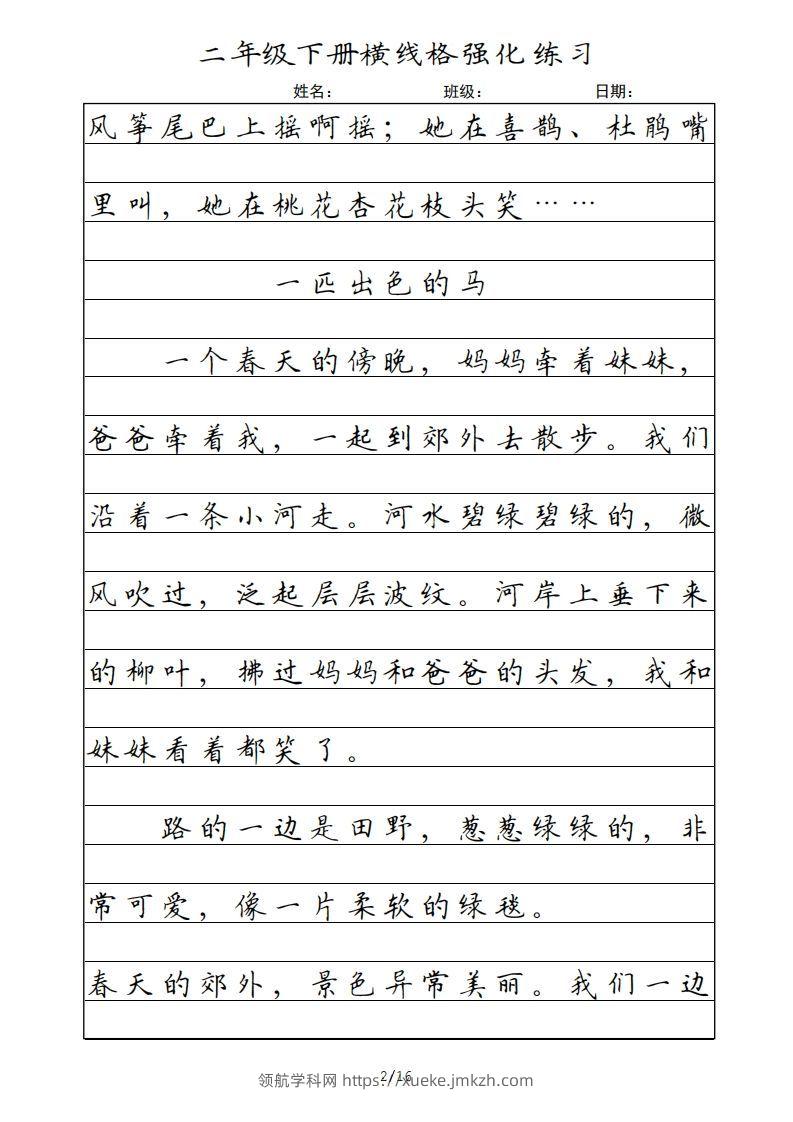 二年级下册横线格强化练习
姓名： 班级： 日期：
风筝尾巴上摇啊摇；她在喜鹊、杜鹃嘴
里叫，她在桃花杏花枝头笑……
一匹出色的马
一个春天的傍晚，妈妈牵着妹妹，
爸爸牵着我，一起到郊外去散步。我们
沿着一条小河走。河水碧绿碧绿的，微
风吹过，泛起层层波纹。河岸上垂下来
的柳叶，拂过妈妈和爸爸的头发，我和
妹妹看着都笑了。
路的一边是田野，葱葱绿绿的，非
常可爱，像一片柔软的绿毯。
春天的郊外，景色异常美丽。我们一边
2/16
领航学科网 https://xueke.jmkzh.com